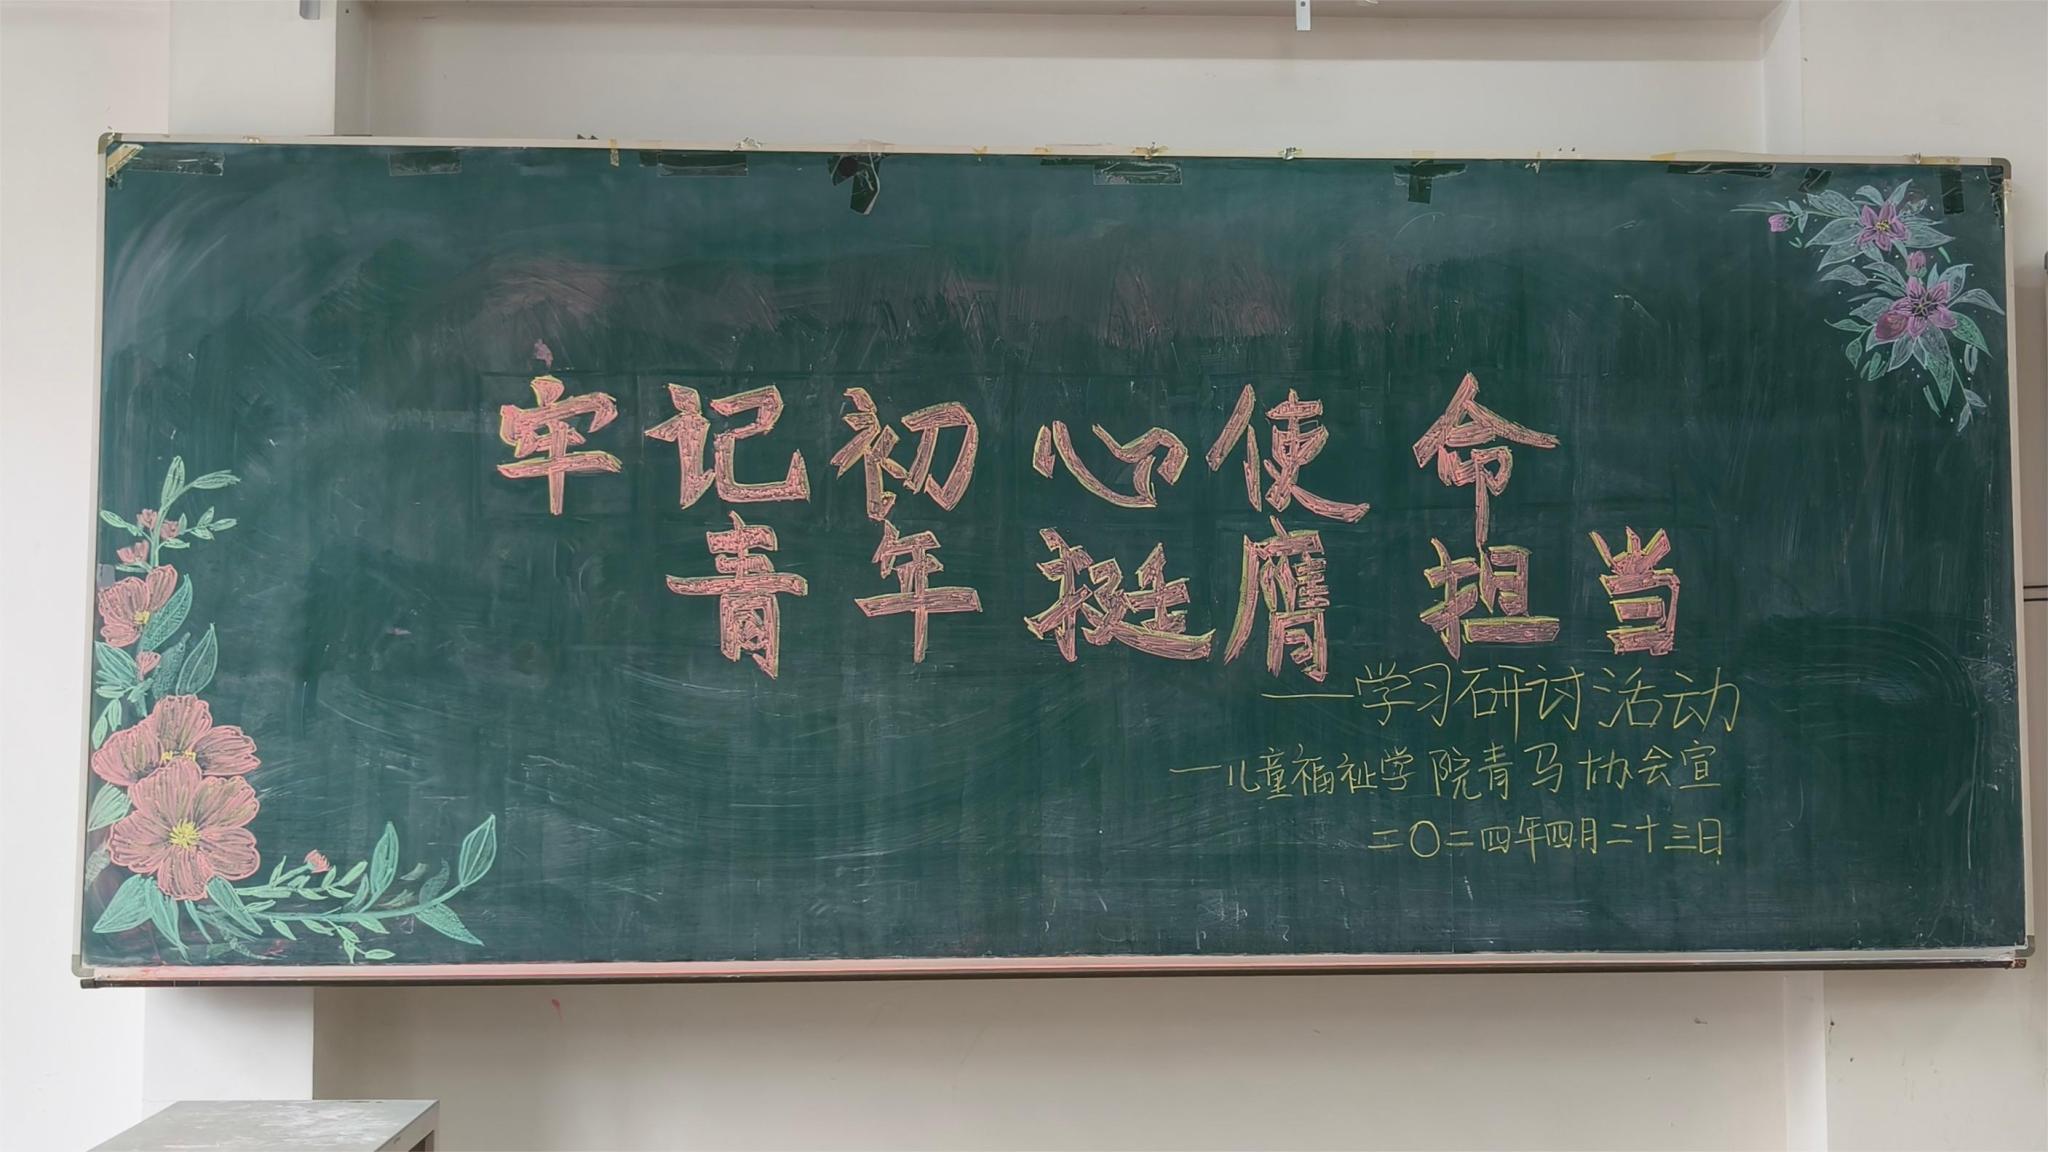 牢记初心使命
青年挺膺担当
—学习研讨活动
—儿童福祉学院青马协会宣
二〇二四年四月二十三日